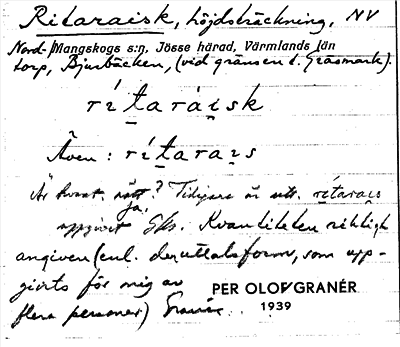 Ritaraisk, höjdsträckning, NV
Nord- Mangskogs s:n, Jösse härad, Värmlands län
torp, Bjurbäcken, (vid gränsen t. Gräsmark).
rítaráisk
Även: rítarais
Är kvant. rätt? Tidigare är utt. rítarais
ja.
uppgivit Gks. Kvantiteten riktigt
angiven (enl. den uttalsform, som upp-
givits för mig av
flera personer) Granér.
PER OLOF GRANÉR
1939